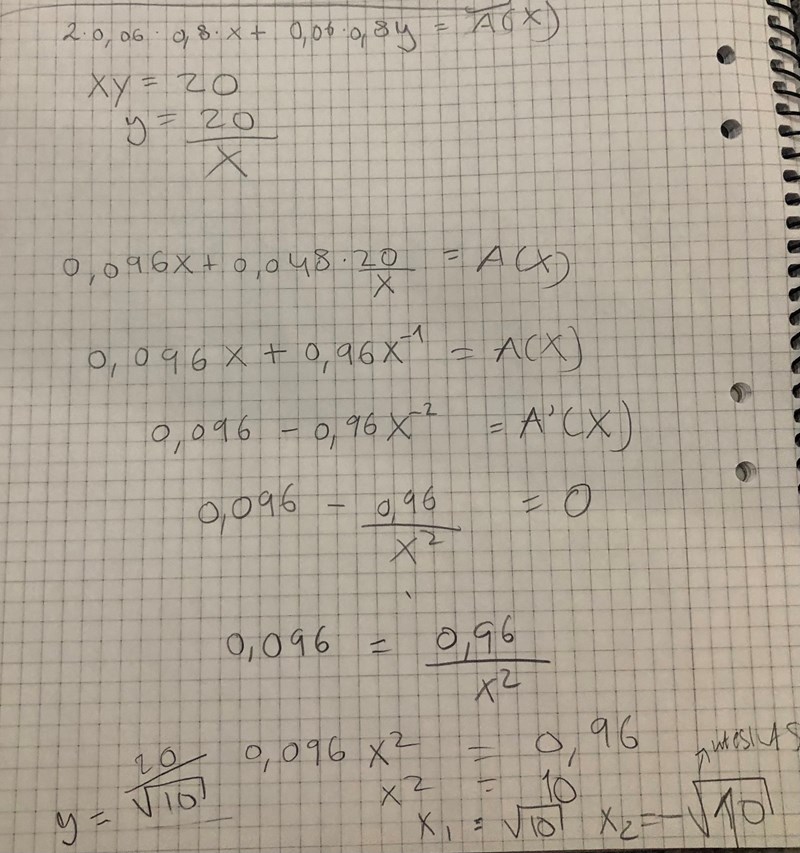 2·0,06·0,8·x + 0,06·0,8y = A(X)
xy = 20
y = 20/X
0,096x + 0,048·20/x = A(X)
0,096x + 0,96x⁻¹ = A(X)
0,096 - 0,96x⁻² = A'(X)
0,096 - 0,96/x² = 0
0,096 = 0,96/x²
0,096x² = 0,96
x² = 10
x₁ = √10 x₂ = -√10
y = 20/√10